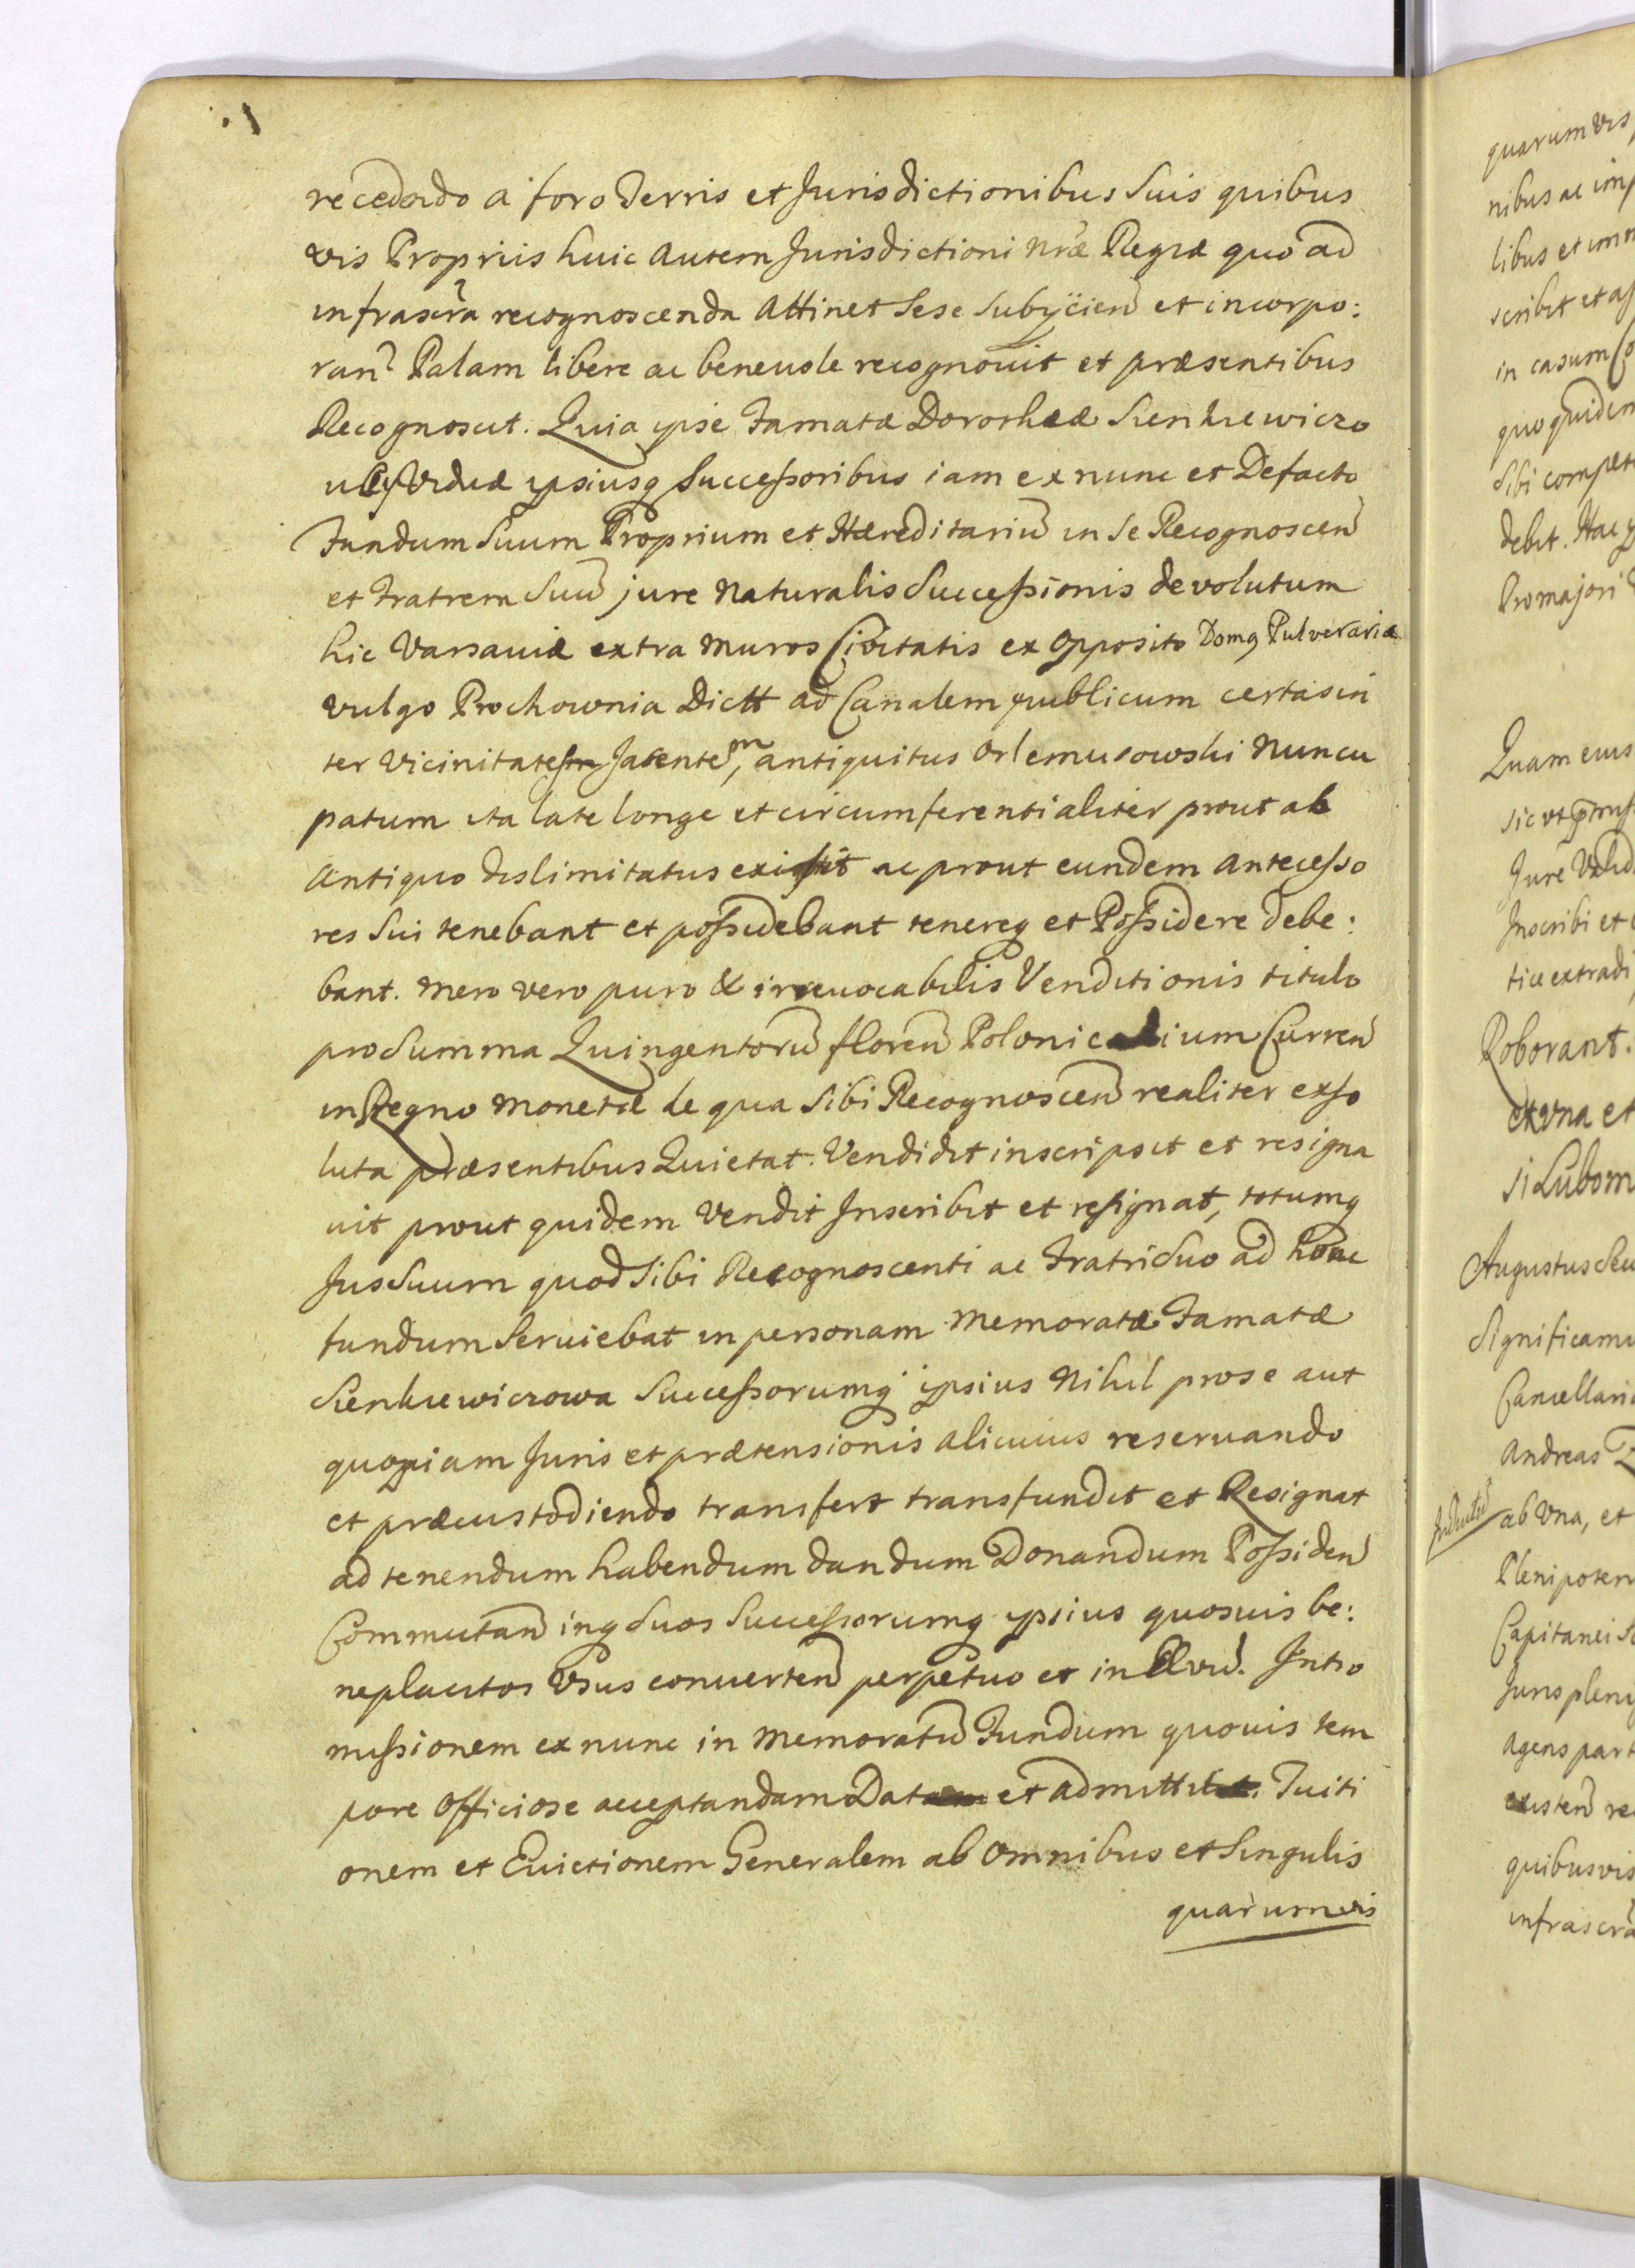 recedendo a foro Terris et Jurisdictionibus Suis quibus
vis Proprijs huic autem Jurisdictioni nrae Regiae quo ad
infrascra recognoscenda attinet Sese Subijcien et incorpo:
ran Palam libere ac beneuole recognouit et praesentibus
Recognoscit. Quia ipse Famatae Dorotheae Sienkiewiczo
Viduae ipsiusq Successoribus iam ex nunc et Defacto
Fundum Suum Proprium et Haereditariu in Se Recognoscen
et Fratrem Suu jure Naturalis Successionis devolutum
hic Varsauiae extra muros Civitatis ex opposito Domq Pulverariae
vulgo Prochownia Dictt ad Canalem publicum certas in
ter Vicinitates Jacentem, antiquitus Orlemusowski Nuncu
patum ita late longe et circumferentialiter prout ab
Antiquo dislimitatus existit ac prout eundem antecesso
res Sui tenebant et possidebant tenereq et Possidere debe:
bant. Mero vero puro & irreuocabilis Venditionis titulo
pro Summa Quingentoru floren Polonicalium Curren
in Regno monetae de qua Sibi Recognoscen realiter exso
luta praesentibus Quietat. Vendidit inscripsit et resigna
uit prout quidem Vendit Inscribit et resignat, totumq
Jus Suum quod Sibi Recognoscenti ac Fratri Suo ad hunc
fundum Seruiebat in personam memoratae Famatae
Sienkiewiczowa Successorumq ipsius Nihil pro se aut
quopiam Juris et praetensionis alicuius reseruando
et praecustodiendo transfert transfundit et Resignat
ad tenendum habendum dandum Donandum Possiden
Commutan inq Suos Successorumq ipsius quosuis be:
neplacitos Usus conuerten perpetuo et in Aevu. Intro
missionem ex nunc in memoratu Fundum quouis tem
pore Officiose acceptandam Dat et admittit. Tuiti
onem et Euictionem Generalem ab Omnibus et Singulis
quarumvis
quarumvis
nibus ac imp
libus et imm
scribit et as
in casum Co
quo quidem
Sibi compet
debit. Hac
Pro majori
Quam eius
Jure Valid
Inscribi et
tice extradi
Roborant.
ex una et
si Lubom
Augustus Secu
Significamu
Cancellaria
Andreas
ab Una, et
Plenipoten
Capitanei
Juris pleni
agens part
existen re
quibusvis
infrascra